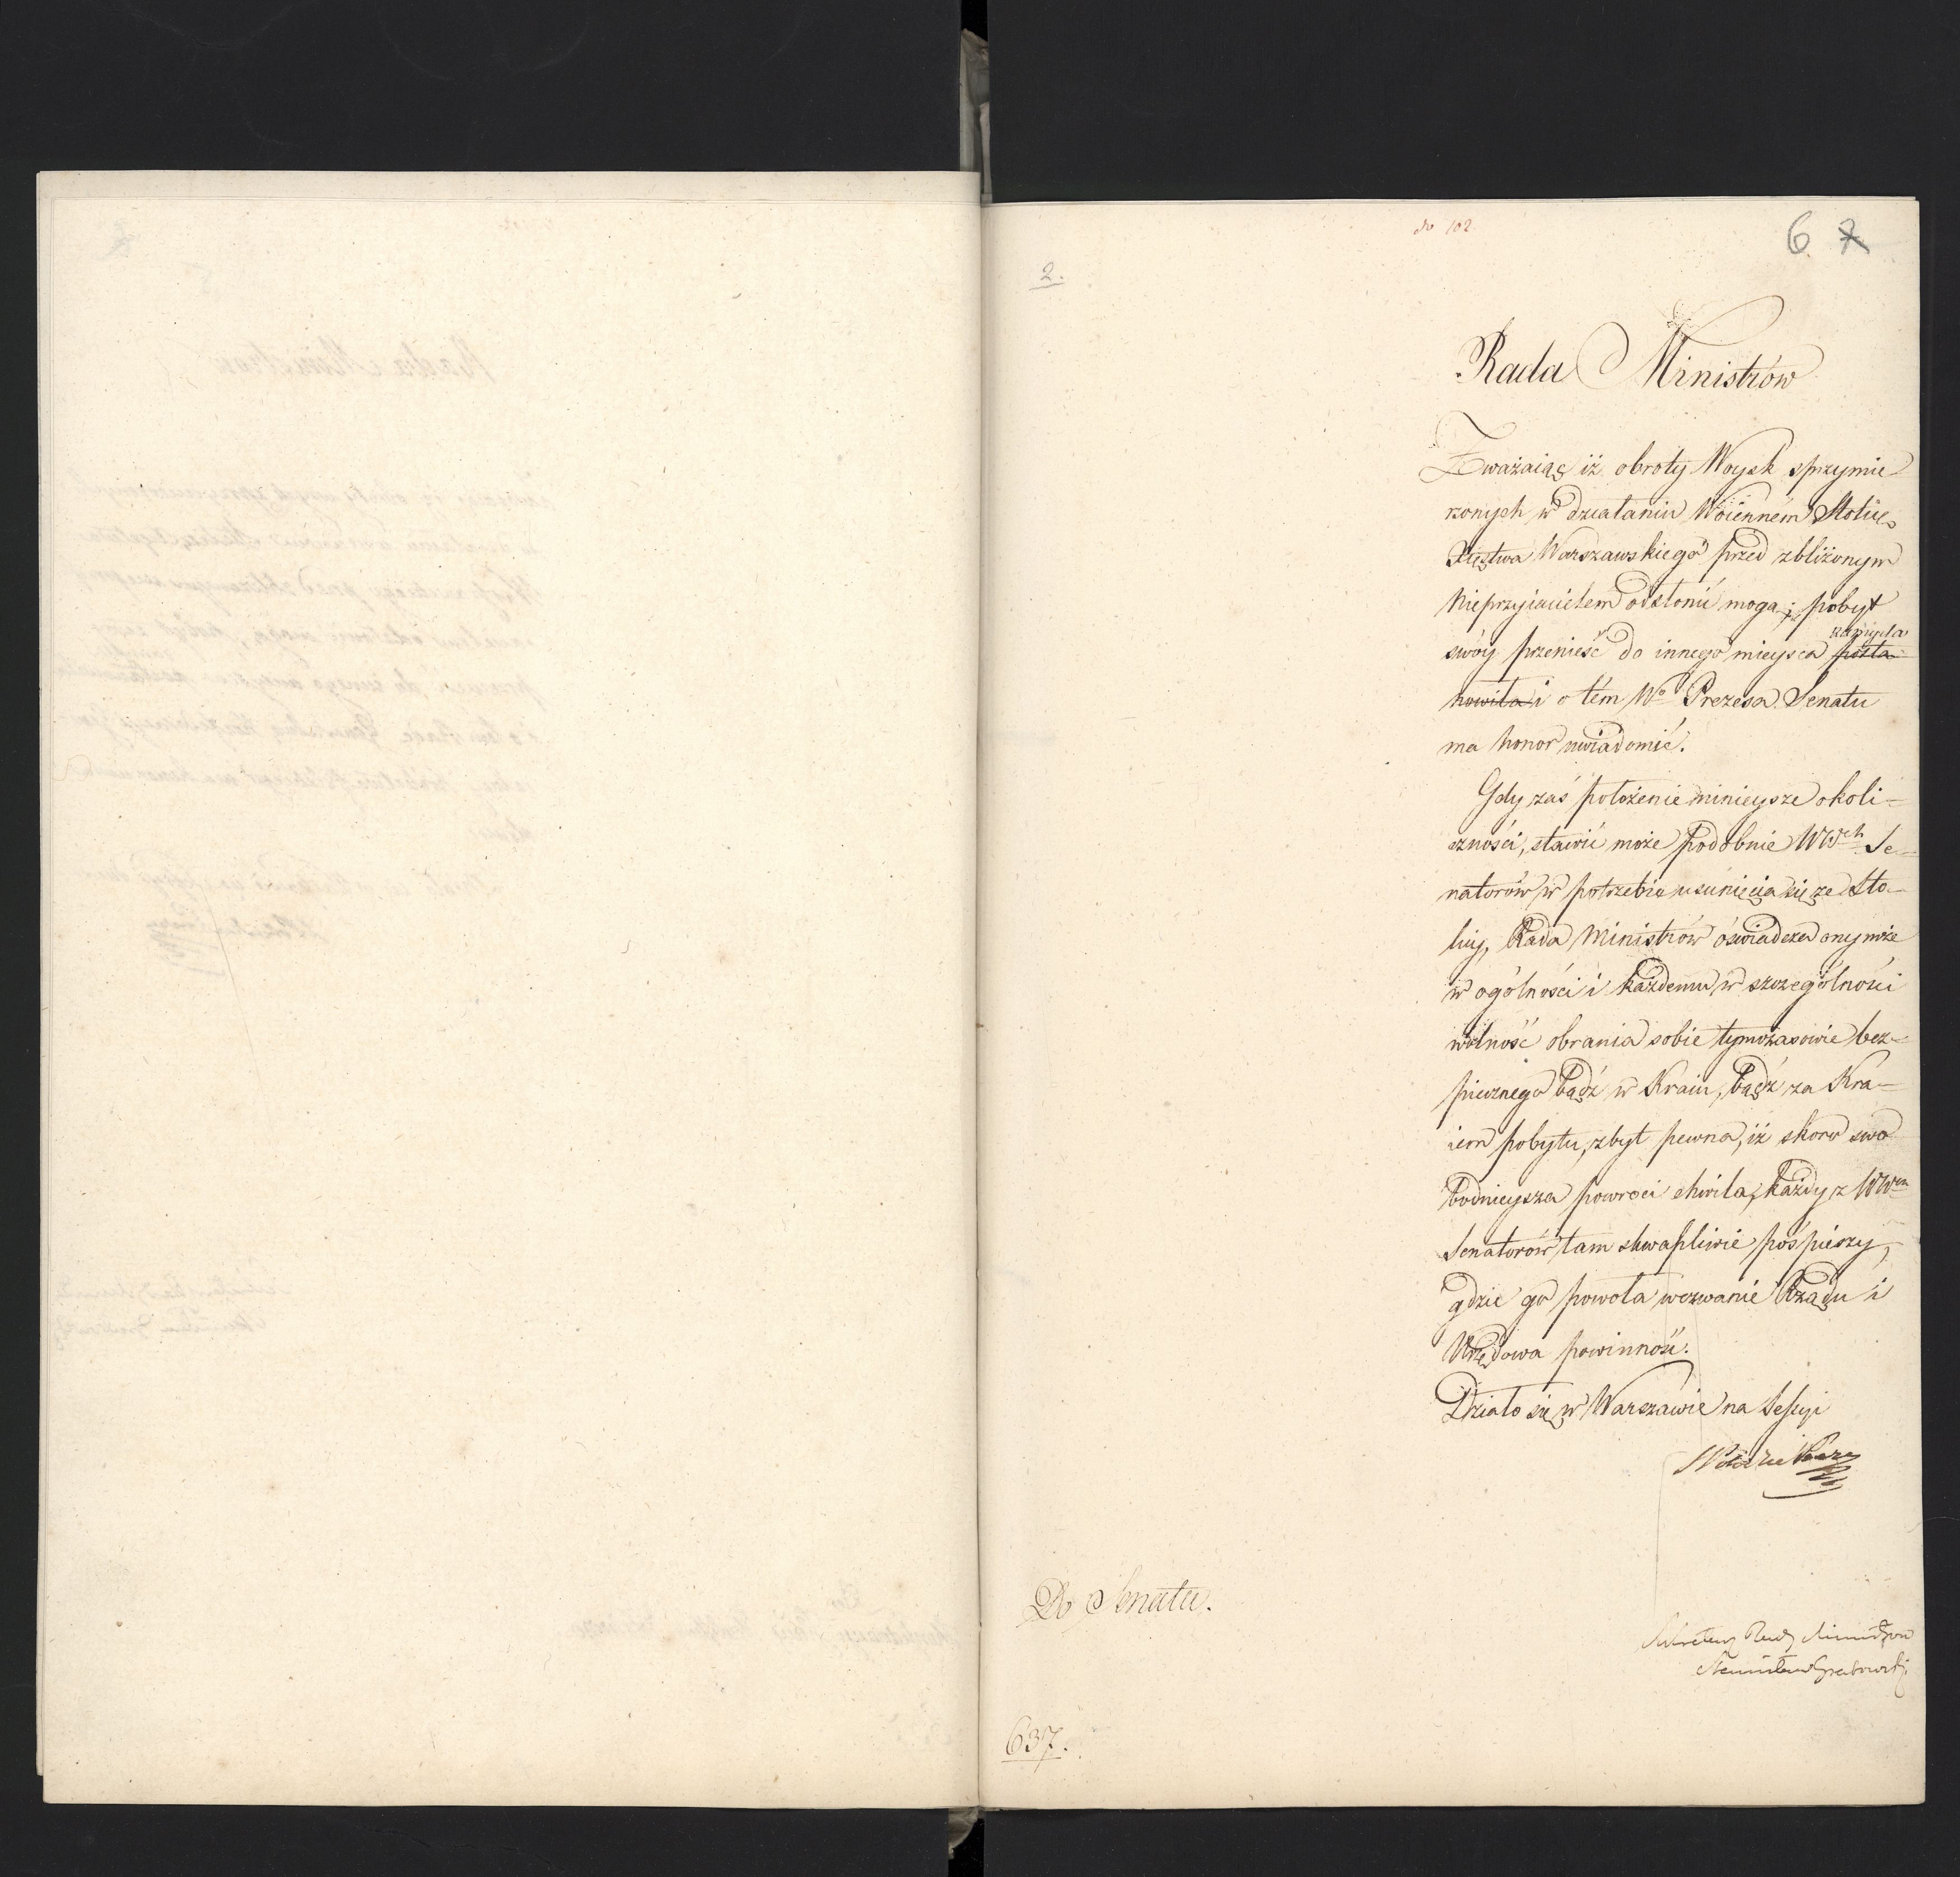 do 102
6. 7
2.
Rada Ministrów
Zważaiąc iż obroty Woysk sprzymie
rzonych w działaniu Woiennem Stolicę
Xięstwa Warszawskiego przed zbliżonym
Nieprzyiacielem odsłonić mogą; pobyt
swóy przenieść do innego mieysca posta
nowiła i o tém Wo Prezesa Senatu
ma honor uwiadomić.
Gdy zaś położenie ninieysze okoli-
czności, stawić może podobnie WWch Se-
natorów w potrzebie usunięcia się ze Sto-
licy, Rada Ministrów oświadcza onymże
w ogólności i każdemu w szczególności
wolność obrania sobie tymczasowie bez-
piecznego bądź w Kraiu, bądź za Kra-
iem pobytu, zbyt pewna, iż skoro swo
bodnieysza powróci chwila, każdy z WWch
Senatorów tam skwapliwie pośpieszy,
gdzie go powoła wezwanie Rządu i
Urzędowa powinność.
Działo się w Warszawie na Sessyi
Do Senatu.
Sekretarz Rady Ministrów
Stanisław Grabowski
637.